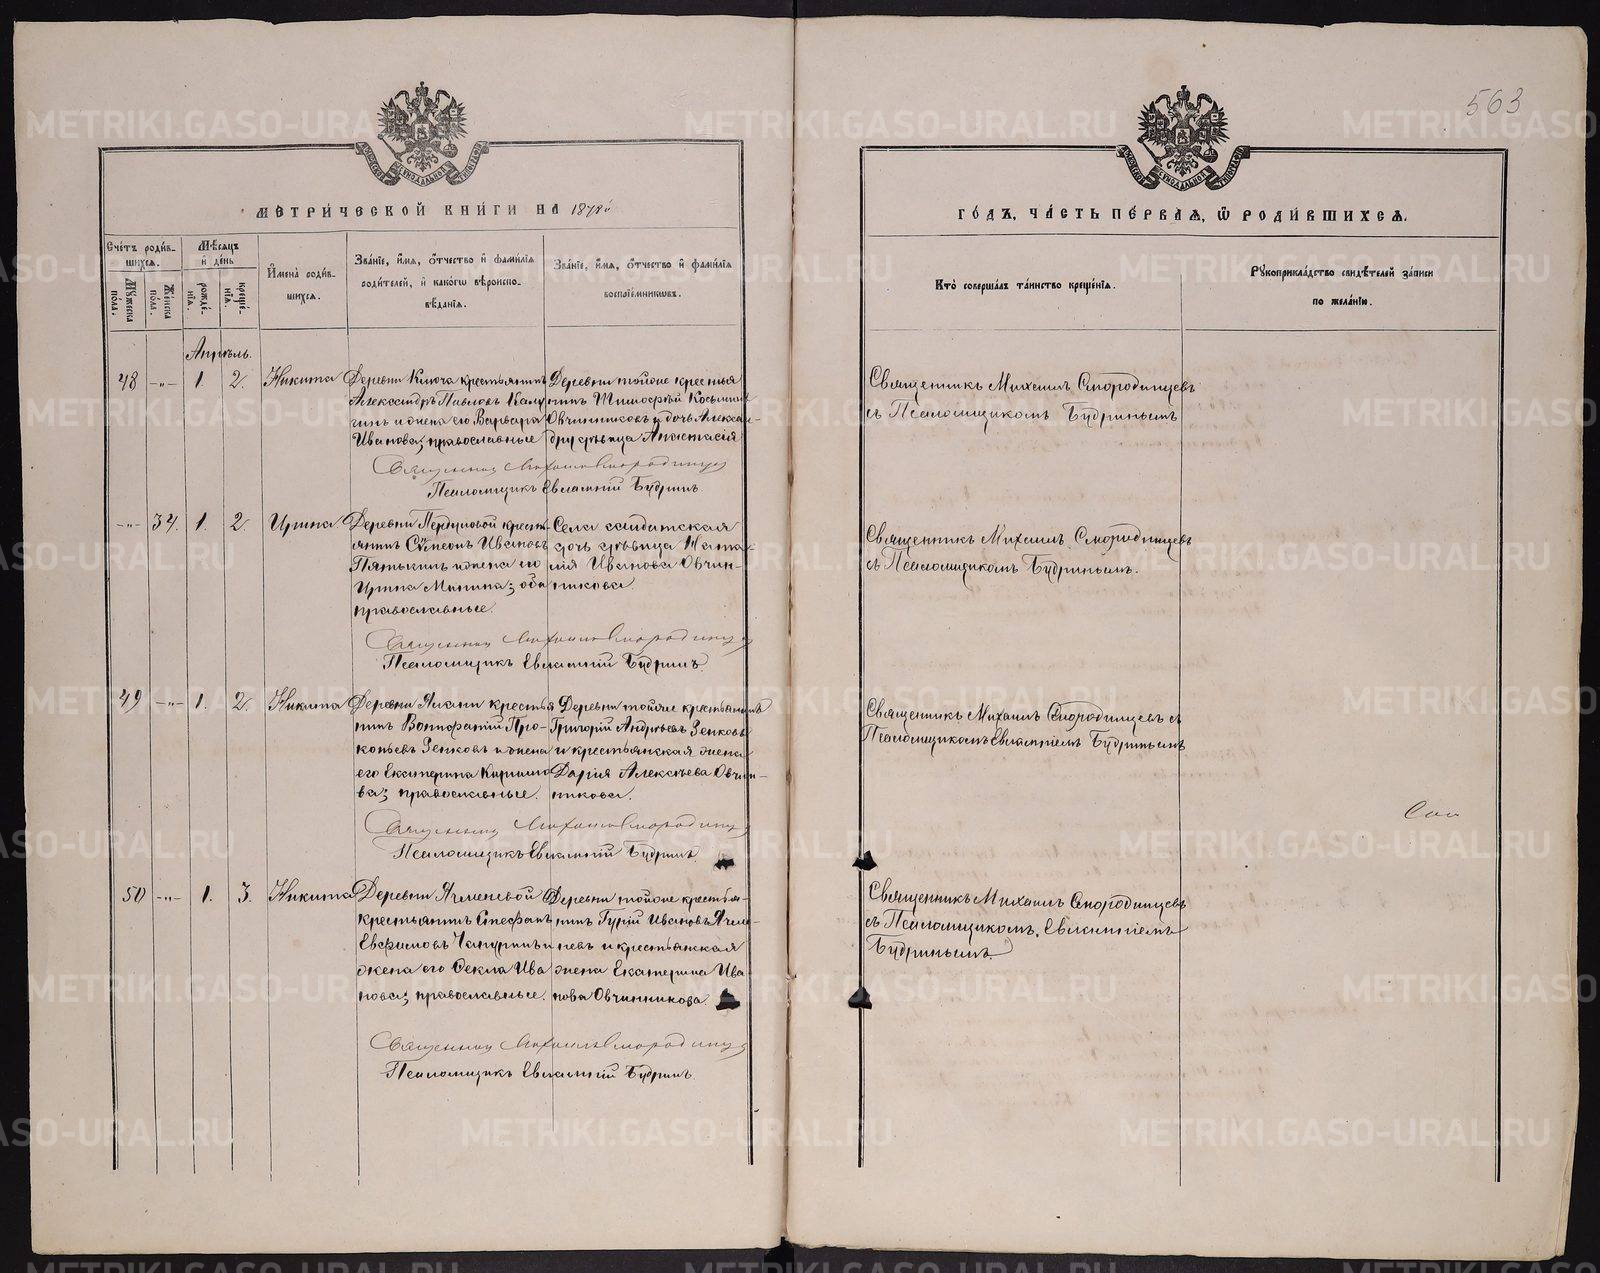 563
МЕТРИ́ЧЕСКОЙ КНИ́ГИ НА 1878й
Сче́тъ роди́в-
шихся.
Мѣ́сяцъ
и҆ де́нь
Му́жеска
по́ла.
Же́нска
по́ла.
рожде́-
нїя.
креще́-
нїя.
И҆мена̀ роди́в-
шихся.
Зва́нїе, и҆́мя, ѻ҆́тчество и҆ фами́лїя
роди́телей, и҆ како́гѡ вѣроиспо-
вѣ́данїя.
Зва́нїе, и҆́мя, ѻ҆́тчество и҆ фами́лїя
воспрїе́мниковъ.
Апрѣль.
48 -"- 1. 2. Никита
Деревни Ключа крестьянинъ
Александръ Павловъ Калу
гинъ и жена его Варвара
Иванова; православные
Деревни тойже крестья
нинъ Тимофей Косьминъ
Овчинниковъ и дочь Алексан-
дра дѣвица Анастасія
Священник Михаил Смородинцев
Псаломщикъ Евлампій Будринъ.
-"- 34. 1. 2. Ирина.
Деревни крестья-
янинъ Сѵмеонъ Ивановъ
Пятыгинъ и жена его
Ирина Минина; оба
православные.
Села солдатская
дочь дѣвица Ната-
лія Иванова Овчин-
никова.
Священник Михаил Смородинцев
Псаломщикъ Евлампій Будринъ.
49 -"- 1. 2. Никита
Деревни крестья
нинъ Вонифатій Про-
копьевъ Зенковъ и жена
его Екатерина Кирилло
ва; православные.
Деревни тойже крестьянинъ
Григорій Андреевъ Зенковъ
и крестьянская жена
Дарія Алексѣева Овчин-
никова.
Священник Михаил Смородинцев
Псаломщикъ Евлампій Будринъ
50 -"- 1. 3. Никита
Деревни Ячменевой
крестьянинъ Стефанъ
Евфимовъ Чапуринъ и
жена его Ѳекла Ива
нова; православные.
Деревни тойже крестья-
нинъ Гурій Ивановъ Ячме-
невъ и крестьянская
жена Екатерина Ива
нова Овчинникова
Священник Михаил Смородинцев
Псаломщикъ Евлампій Будринъ.
ГО́ДЪ, ЧА́СТЬ ПЕ́РВАЯ, Ѡ҆ РОДИ́ВШИХСЯ.
Кто̀ соверша́лъ та́инство креще́нїя.
Рꙋкоприкла́дство свидѣ́телей за́писи
по жела́нїю.
Священникъ Михаилъ Смородинцевъ
съ Псаломщикомъ Будринымъ
Священникъ Михаилъ Смородинцевъ
съ Псаломщикомъ Будринымъ.
Священникъ Михаилъ Смородинцевъ съ
Псаломщикомъ Евлампіемъ Будринымъ
Священникъ Михаилъ Смородинцевъ
съ Псаломщикомъ Евлампіемъ
Будринымъ.
METRIKI.GASO-URAL.RU